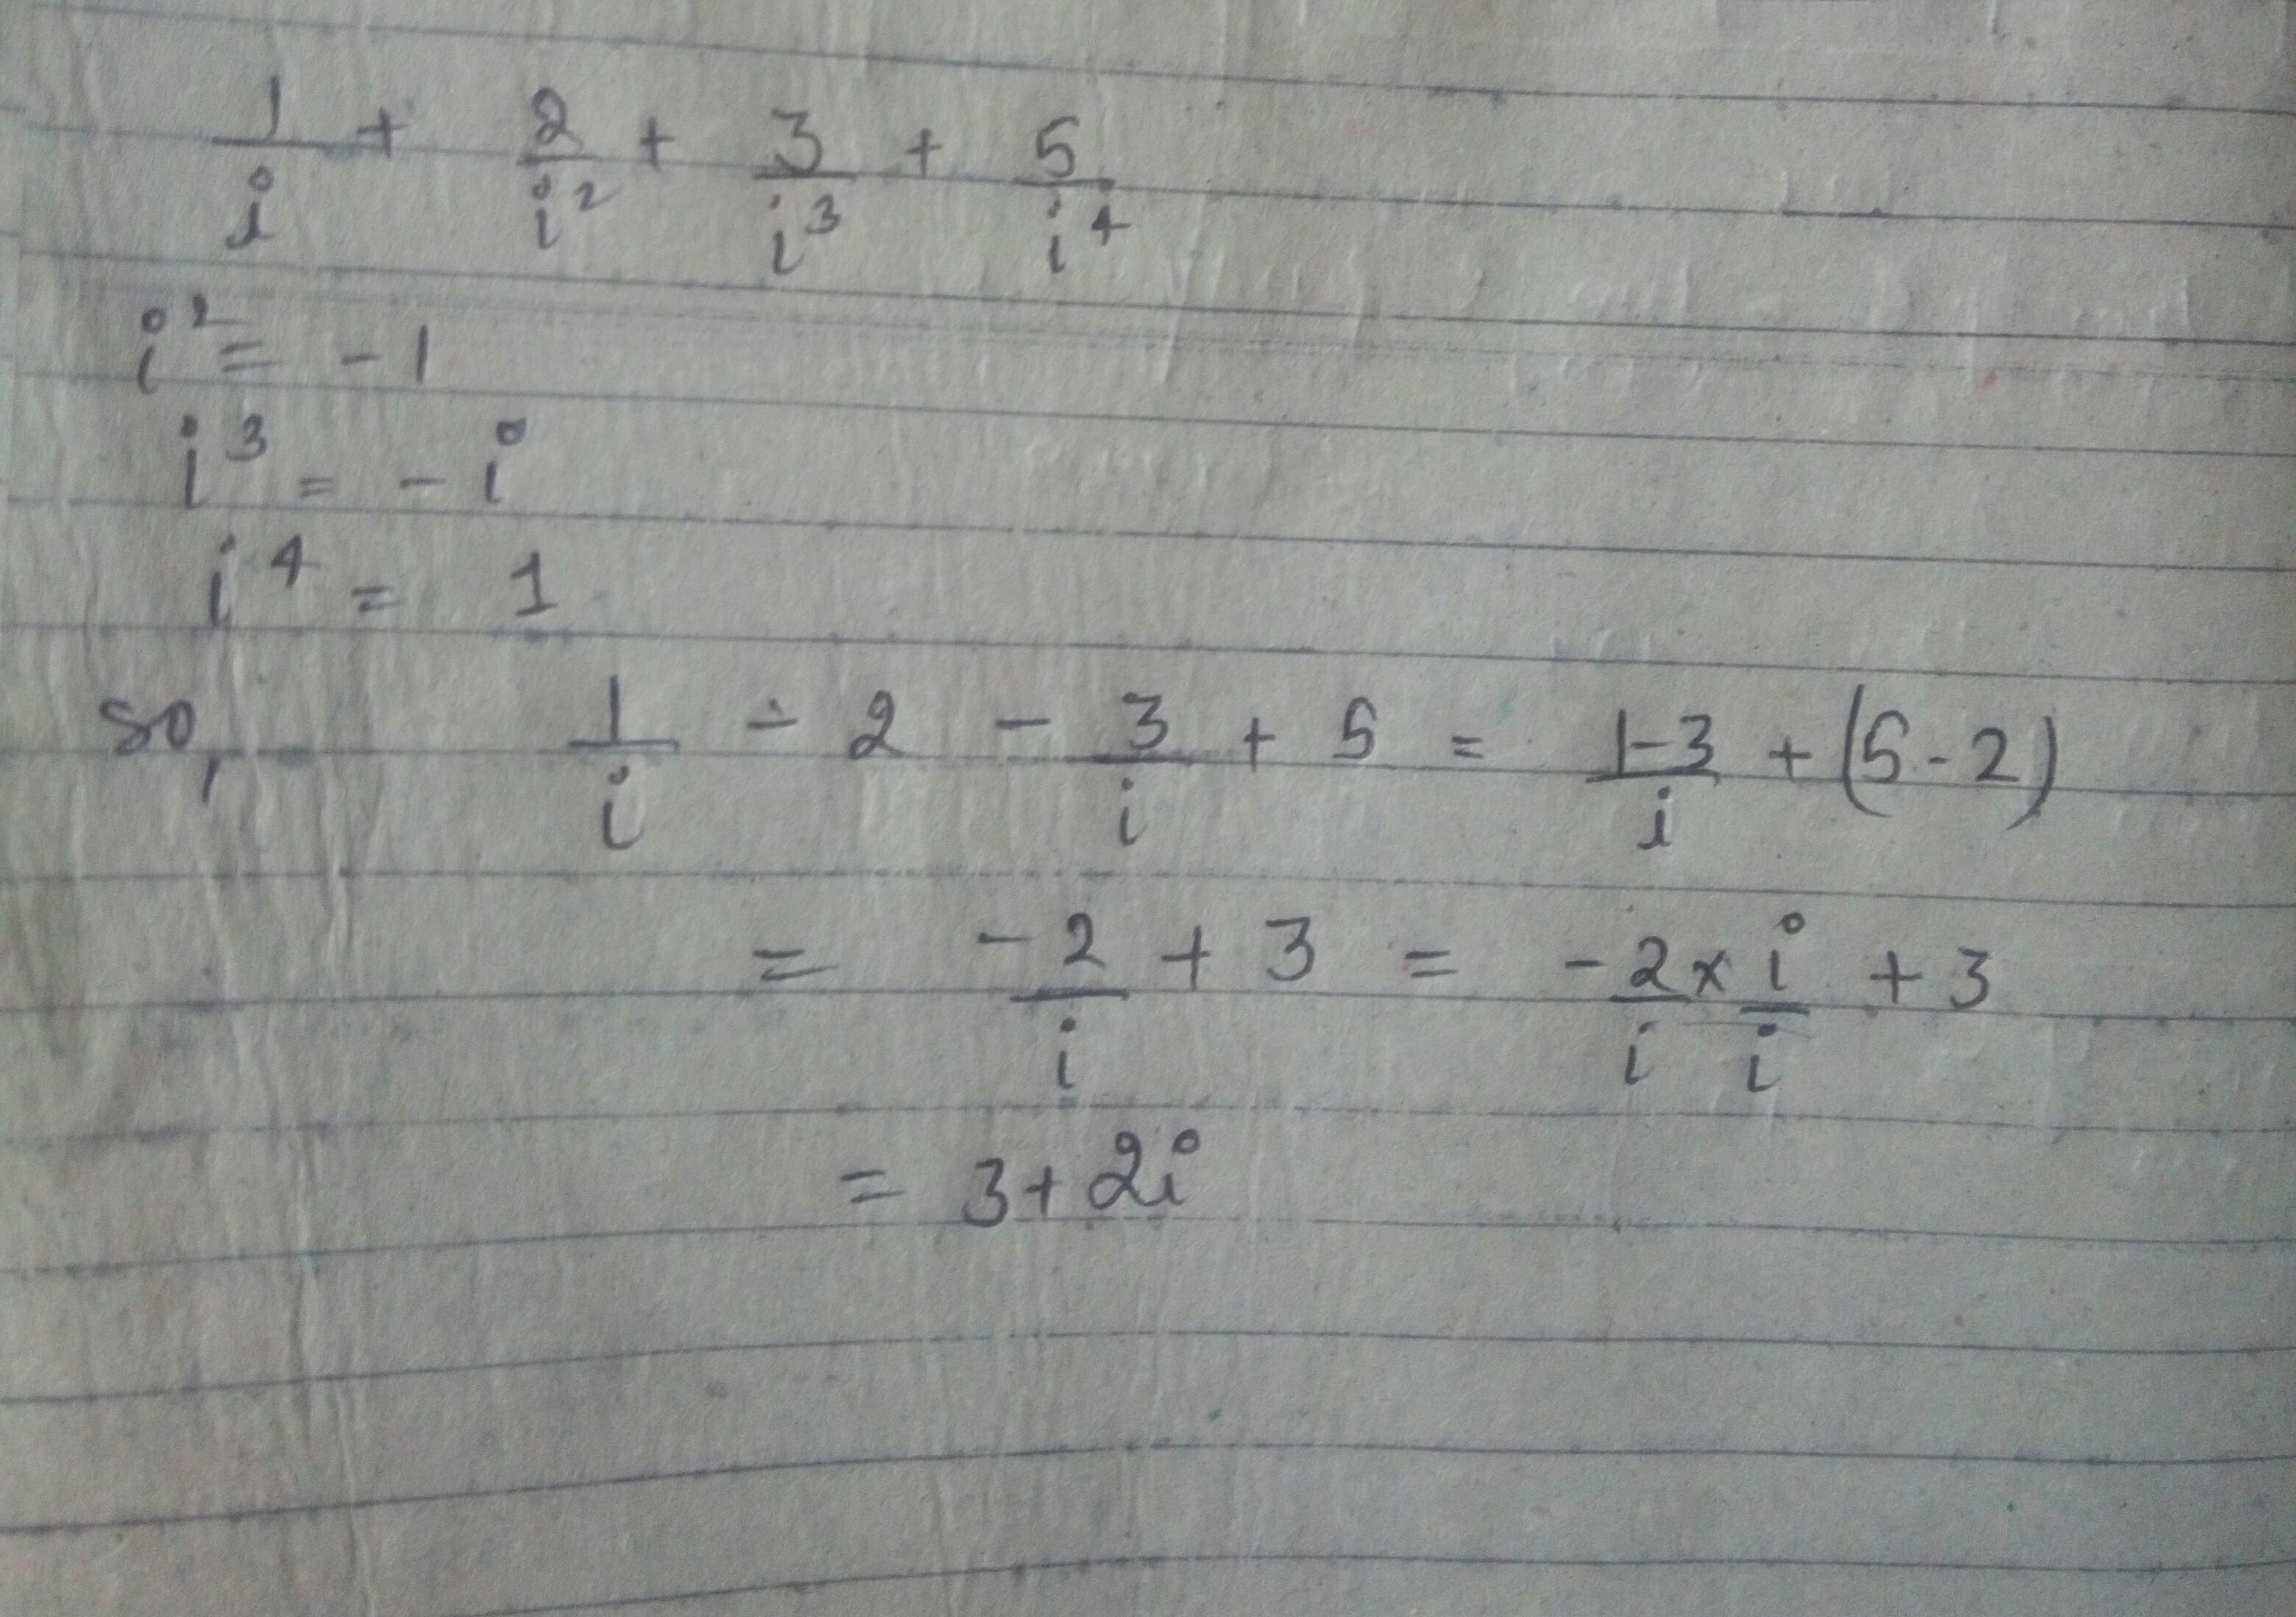 1/i + 2/i² + 3/i³ + 5/i⁴
i² = -1
i³ = -i
i⁴ = 1
so, 1/i - 2 - 3/i + 5 = 1-3/i + (5-2)
= -2/i + 3 = -2/i × i/i + 3
= 3+2i